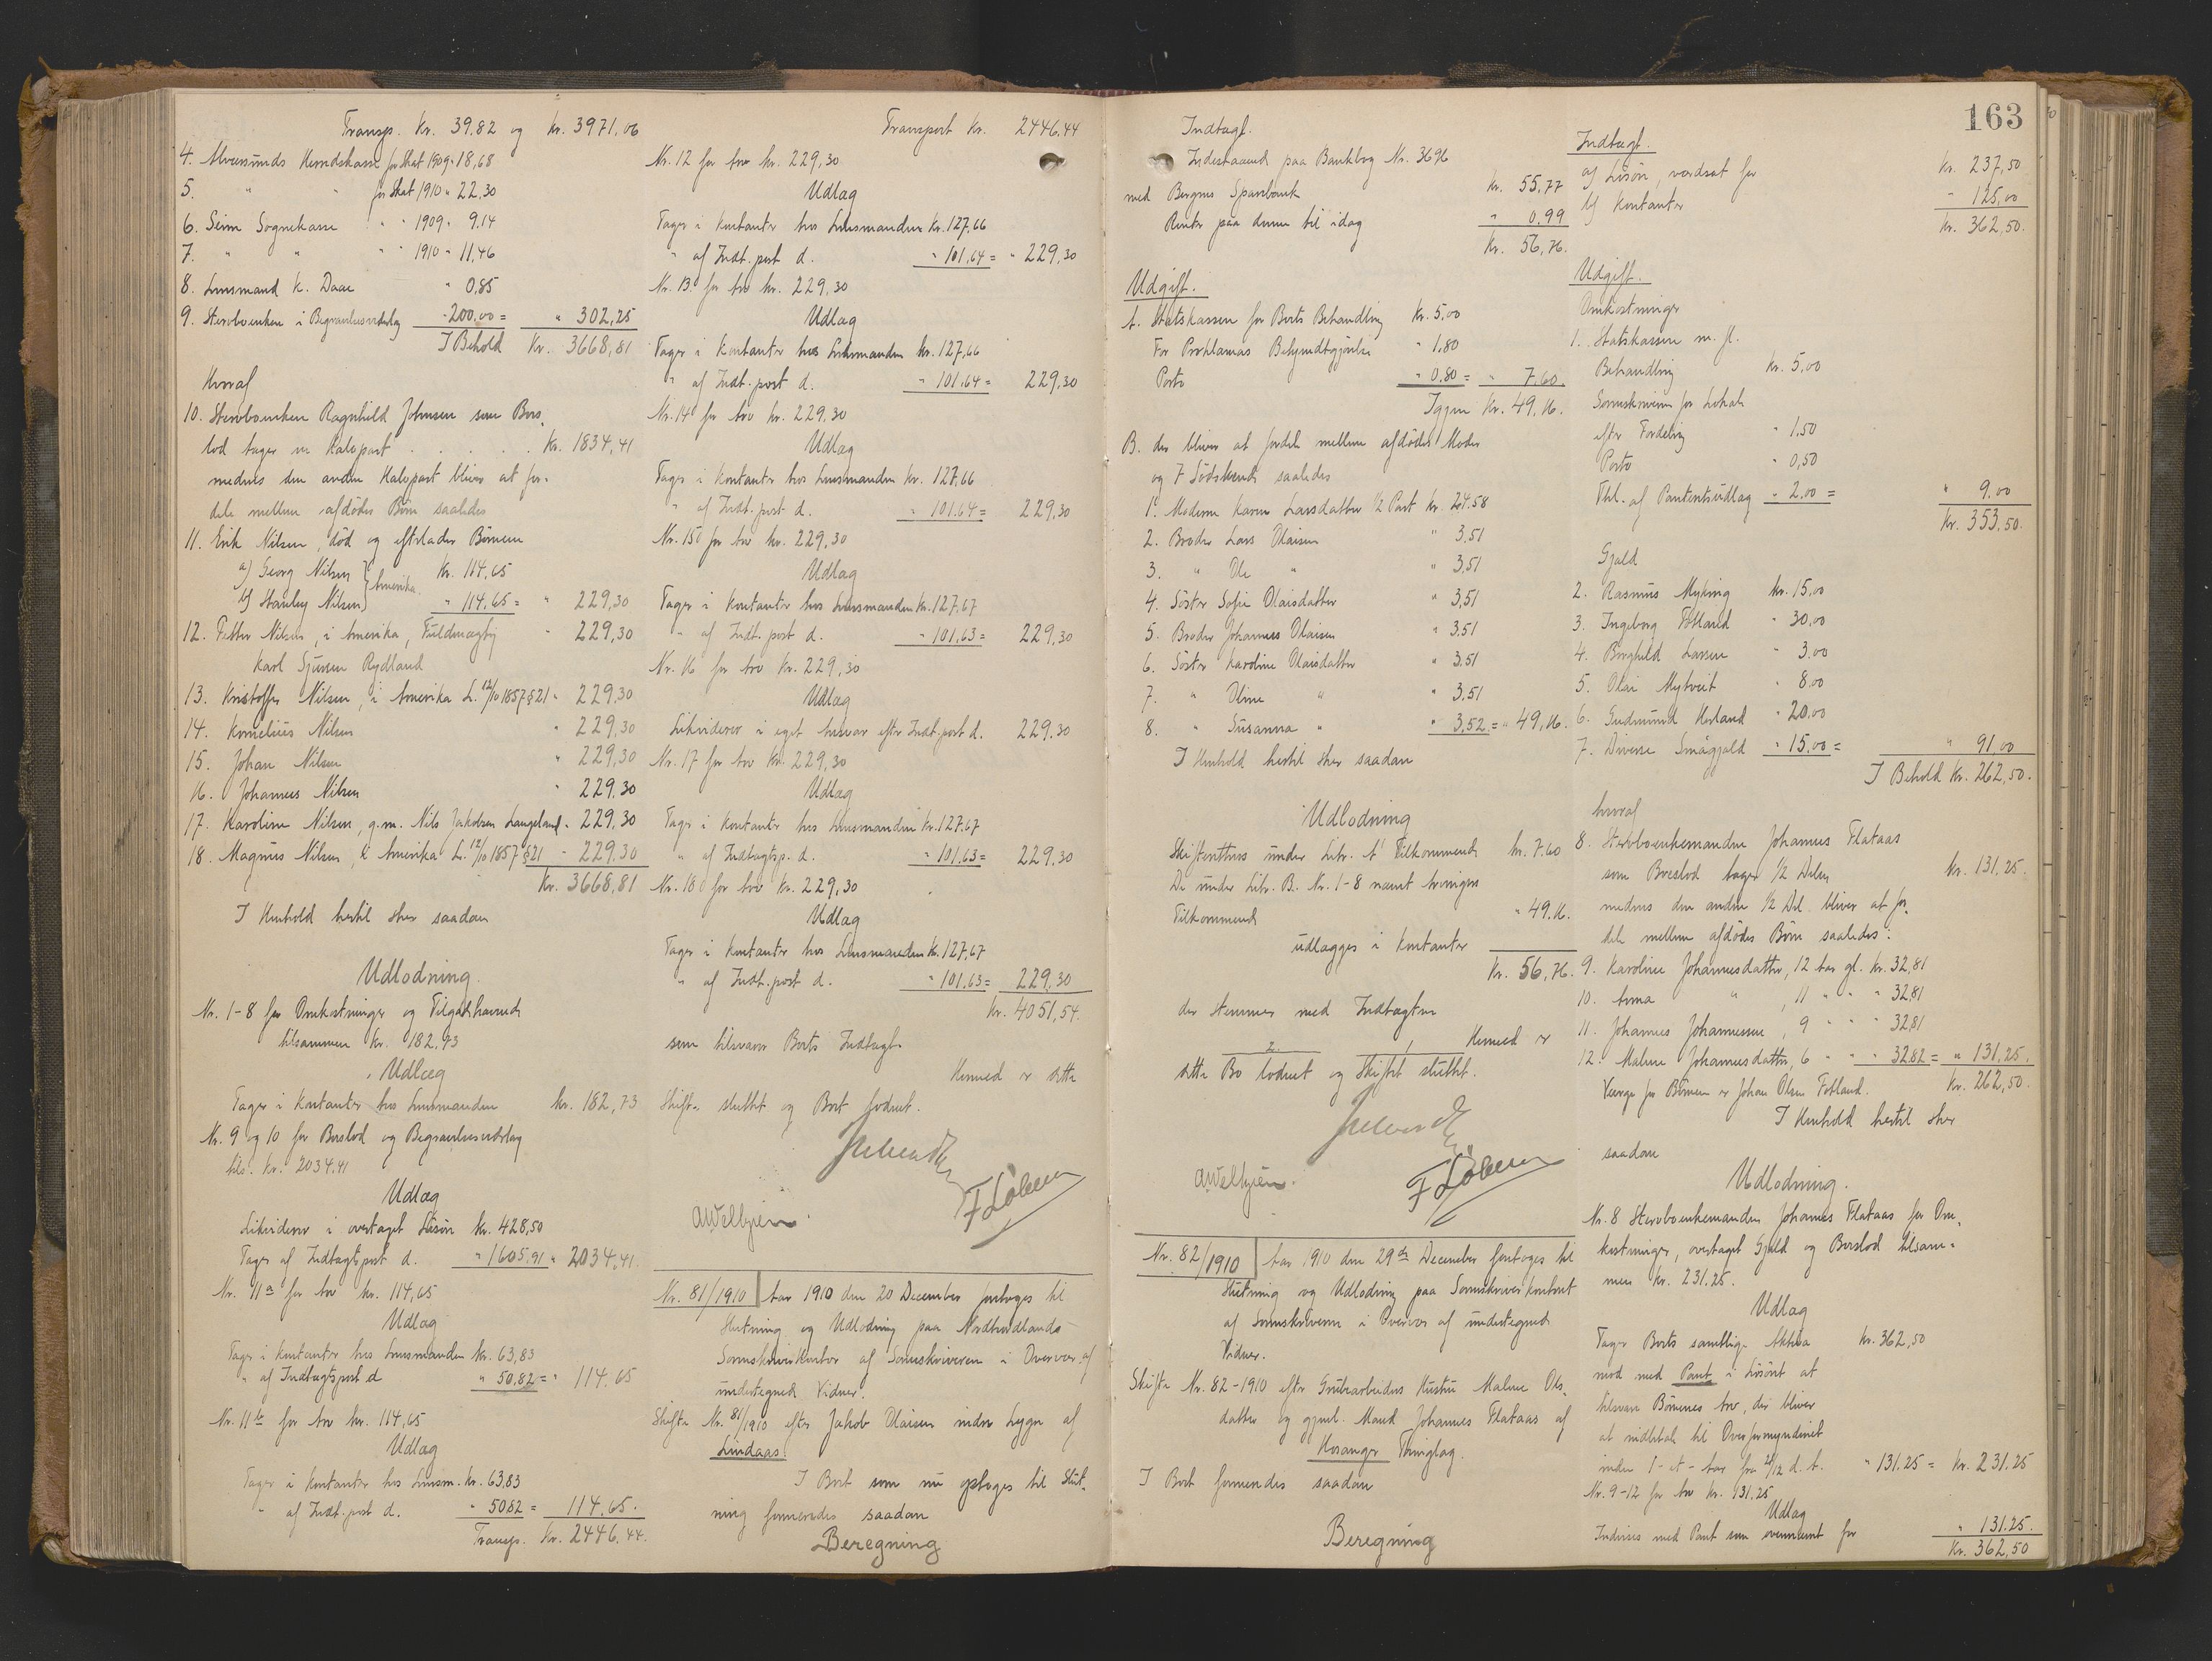 Transp. Kr. 39.82 og Kr. 3971,06
4. Alversunds Herredskasse for Skat 1909 " 18,68
5. " " for Skat 1910 " 22,30
6. Seim Sognekasse " " 1909 " 9.14
7. " " " " 1910 " 11,46
8. Lensmand K. Daae " 0,85
9. Sterboenken i Begravelsesudlæg " 200,00 = " 302,25
I Behold Kr. 3668,81
Hvoraf
10. Sterboenken Ragnhild Johnsen som Bos
lod tager en Halvpart . . . . . Kr. 1834,41
medens den anden Halvpart bliver at for-
dele mellem afdødes Børn saaledes
11. Erik Nilsen, død og efterlader Børnene
a) Georg Nilsen } Kr. 114,65
b) Stanley Nilsen } Amerika " 114,65 = " 229,30
12. Petter Nilsen, i Amerika, Fuldmægtig " 229,30
Karl Sjursen Rydland
13. Kristoffer Nilsen, i Amerika L. 12/10 1857 § 21 " 229,30
14. Kornelius Nilsen " 229,30
15. Johan Nilsen " 229,30
16. Johannes Nilsen " 229.30
17. Karoline Nilsen, g.m. Nils Jakobsen Langeland " 229,30
18. Magnus Nilsen, i Amerika L. 12/10 1857 § 21 " 229.30
Kr. 3668,81
I Henhold hertil sker saadan
Udlodning.
Nr. 1-8 for Omkostninger og Tilgodehavende
tilsammen Kr. 182.73
Udlæg
Tages i Kontanter hos Lensmanden Kr. 182,73
Nr. 9 og 10 for Boslod og Begravelsesudlæg
tils. Kr. 2034.41
Udlæg
Likviderer i overtaget Løsøre Kr. 428,50
Tages af Indtægtspost d. " 1605,91 " 2034,41.
Nr. 11 a for Arv Kr. 114,65
Udlæg
Tages i Kontanter hos Lensmanden Kr. 63,83
" af Indtægtspost d " 50,82 = " 114.65
Nr. 11 b for Arv Kr. 114,65
Udlæg
Tages i Kontanter hos Lensm. Kr. 63,83
" af Indt. post d. " 50.82 = 114,65.
Transp. Kr. 2446.44.
Transport Kr. 2446.44
Nr. 12 for Arv Kr. 229,30
Udlæg
Tages i Kontanter hos Lensmanden Kr. 127,66
" af Indt. post d. " 101,64 = " 229,30
Nr. 13 for Arv Kr. 229,30
Udlæg
Tages i Kontanter hos Lensmanden Kr. 127,66
" af Indt. post d. " 101.64 = 229,30
Nr. 14 for Arv Kr. 229,30
Udlæg
Tages i Kontanter hos Lensmanden Kr. 127,66
" af Indt. post d. " 101.64 = 229,30
Nr. 15 for Arv Kr. 229,30
Udlæg
Tages i Kontanter hos Lensmanden Kr. 127,67
" af Indt. post d. " 101,63 = 229,30
Nr. 16 for Arv Kr. 229,30
Udlæg
Likviderer i eget Ansvar efter Indt. post d. 229.30
Nr. 17 for Arv Kr. 229,30
Udlæg
Tages i Kontanter hos Lensmanden Kr. 127.67
" af Indtægtsp. d. " 101.63 = 229.30
Nr. 18 for Arv Kr. 229,30
Udlæg
Tages i Kontanter hos Lensmanden Kr. 127,67
" af Indt. post d. " 101.63 = 229.30
Kr. 4051,54.
som tilsvarer Boets Indtægt.
Hermed er dette
Skifte sluttet og Boet loddent.
AWelhjem.
Nr. 81/1910 Aar 1910 den 20 December foretoges til
Slutning og Udlodning paa Nordhordlands
Sorenskriverkontor af Sorenskriveren i Overvær af
undertegnede Vidner.
Skifte Nr. 81/1910 efter Jakob Olaisen indre Lygre af
Lindaas.
I Boet som nu optoges til Slut-
ning formeredes saadan
Beregning
163
Indtægt.
Indestaaende paa Bankbog Nr. 3696
med Bergens Sparebank Kr. 55,77
Renter paa denne til idag " 0.99
Kr. 56,76.
Udgift.
A. Statskassen for Boets Behandling Kr. 5,00
For Proklamas Bekjendtgjørelse " 1.80
Porto " 0.80 = " 7.60.
Igjen Kr. 49,16.
B. der bliver at fordele mellem afdødes Moder
og 7 Sødskende saaledes
1. Moderen Karen Larsdatter 1/2 Part Kr. 24.58
2. Broder Lars Olaisen " 3,51
3. " Ole " " 3,51
4. Søster Sofie Olaisdatter " 3,51
5. Broder Johannes Olaisen " 3.51
6. Søster Karoline Olaisdatter " 3.51
7. " Oline " " 3.51
8. " Susanna " " 3,52 = " 49,16.
I Henhold hertil sker saadan
Udlodning
Skifteretten under Litr. A Tilkommende Kr. 7.60
De under Litr. B. Nr. 1-8 nævnte Arvingers
Tilkommende " 49.16.
udlægges i Kontanter
Kr. 56,76.
der stemmer med Indtægten
Hermed er
dette Bo loddent og Skiftet sluttet.
AWelhjem.
Nr. 82/1910 Aar 1910 den 29de December foretoges til
Slutning og Udlodning paa Sorenskriverkontoret
af Sorenskriveren i Overvær af undertegnede
Vidner.
Skifte Nr. 82-1910 efter Grubearbeiders Hustru Malene Ols-
datter og gjenl. Mand Johannes Flataas af
Hosanger Thinglag.
I Boet formeredes saadan
Beregning
Indtægt.
a) Løsøre, værdsat for Kr. 237,50
b) Kontanter " 125,00
Kr. 362,50.
Udgift.
Omkostninger
1. Statskassen m. fl.
Behandling Kr. 5,00
Sorenskriveren for Lokale
efter Fordeling " 1.50
Porto " 0,50
Thl. af Panteretsudlæg " 2.00 = " 9.00
Kr. 353,50.
Gjæld
2. Rasmus Myking Kr. 15,00
3. Ingeborg Fotland " 30,00
4. Borghild Larsen " 3.00
5. Olai Mytveit " 8.00
6. Gudmund Herland " 20.00
7. Diverse Smågjæld " 15,00 = " 91,00
I Behold Kr. 262,50.
hvoraf
8. Sterboenkemanden Johannes Flataas
som Boeslod tager 1/2 Delen Kr. 131,25.
medens den anden 1/2 Del bliver at for-
dele mellem afdødes Børn saaledes:
9. Karoline Johannesdatter, 12 Aar gl. Kr. 32,81
10. Anna " , 11 " " " 32.81
11. Johannes Johannessen, 9 " " " 32.81
12. Malene Johannesdatter, 6 " " " 32.82 = " 131,25.
Kr. 262,50.
Værge for Børnene er Johan Olsen Fotland.
I Henhold hertil sker
saadan
Udlodning.
Nr. 8 Sterboenkemanden Johannes Flataas for Om-
kostninger, overtaget Gjæld og Boslod tilsam-
men Kr. 231.25.
Udlæg
Tager Boets samtlige Aktiva Kr. 362,50
mod med Pant i Løsøret at
tilsvare Børnenes Arv, der bliver
at indbetale til Overformynderiet
inden 1 - et - Aar fra 29/12 d. A. " 131.25 = Kr. 231.25
Nr. 9-12 for Arv Kr. 131.25
Udlæg
Indvises med Pant som ovennævnt for " 131.25.
Kr. 362,50